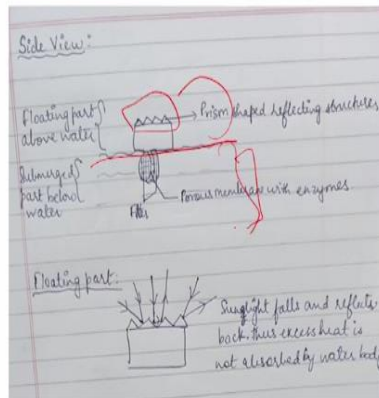 Side View:
Floating part
above water
Prism shaped reflecting structures
Submerged
part below
water
Porous membrane with enzymes.
Floating part:
Sunlight falls and reflects
back, thus excess heat is
not absorbed by water body